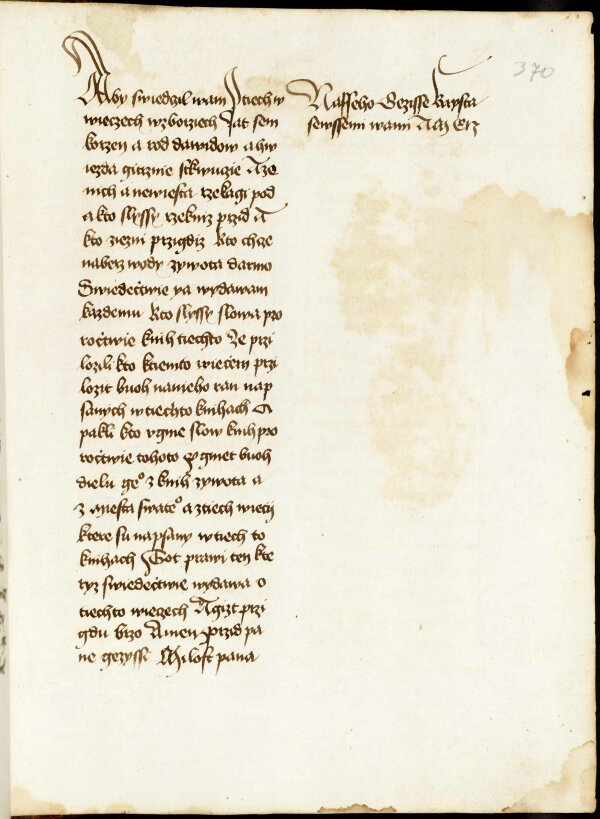 Aby swiedczil wam tiech w
wieczech w zborziech Jat sem
korzen a rod dawidow a hw
iezda gitrznie stkwucie A ze
nich a newiesta rzekagi pod
a kto slyssy rzekniz przid A
kto ziezni przigdiz Kto chze
naberz wody zywota darmo
Swiedeczwie ya wydawam
kazdemu Kto slyssy slowa pro
roctwie knih tiechto Ze przi
lozili kto ktiemto wieczem przi
lozit buoh nameho ran nap
sanych w tiechto knihach A
pakli kto vgme slow knih pro
roctwie tohoto vgmet buoh
dielu geo z knih zywota a
z miesta swateo a ztiech wieczij
ktere su napsany w tiech to
knihach Tot prawi ten kte
ryz swiedectwie wydawa o
tiechto wieczech Agizt przi
gdu brzo Amen przid pa
ne gezyssi Milost pana
Nasseho Gezisse krysta
sewssemi wami Am
370